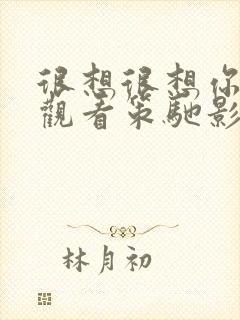 很想很想你
觀看策馳影
林月初